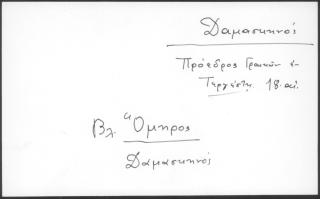 Δαμασκηνός
Πρόεδρος Γραικών εν
Τεργέστη. 18. αι.
Βλ. Όμηρος
Δαμασκηνός